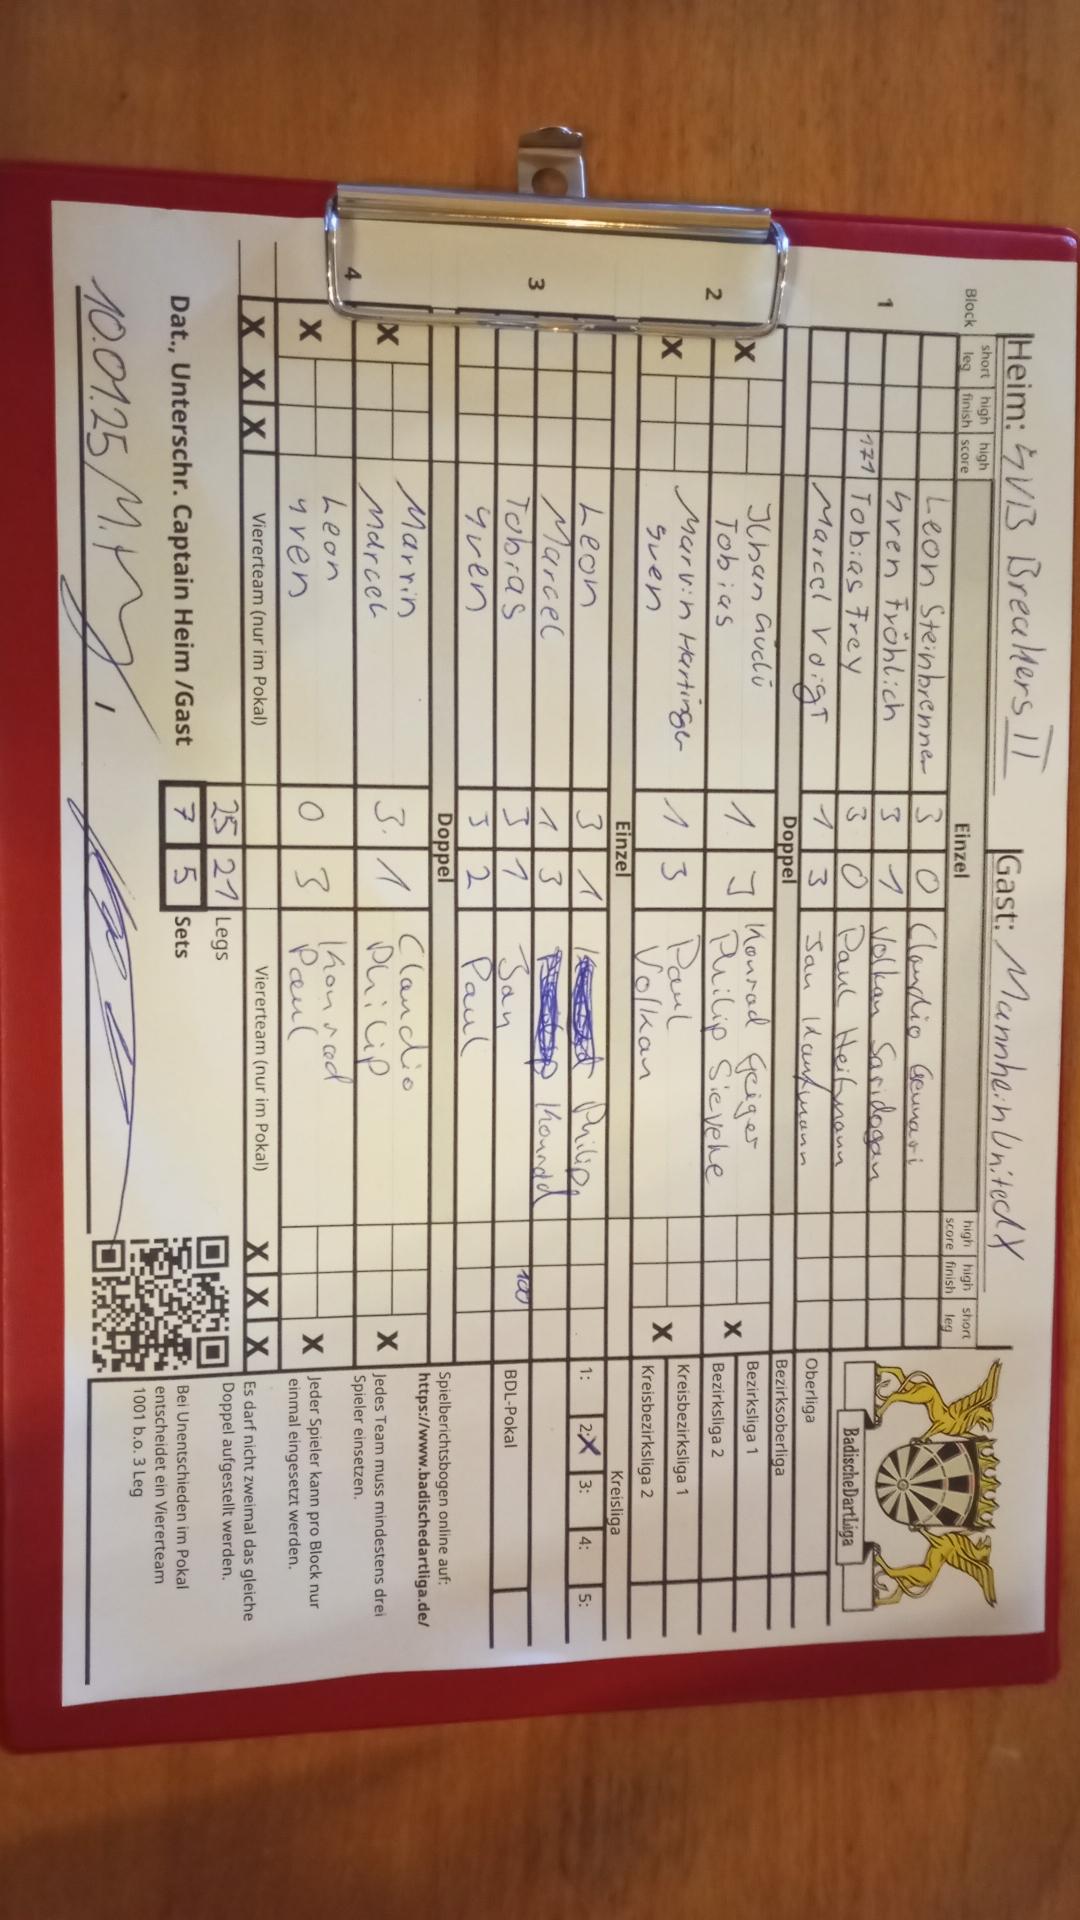 Heim: SVB Breakers II Gast: Mannheim United X
Block short leg high finish high score Einzel high score high finish short leg
1 Leon Steinbrenner 3 0 Claudio Gennari
Sven Fröhlich 3 1 Volkan Saridogan
171 Tobias Frey 3 0 Paul Heitmann
Marcel Voigt 1 3 Jan Kaufmann
Doppel
2 X Ilhan Güclü 1 3 Konrad Geiger X
Tobias Philip Sieveke
X Marvin Hartinger 1 3 Paul X
Sven Volkan
Einzel
3 Leon 3 1 Philip
Marcel 1 3 Konrad
Tobias 3 1 Jan 100
Sven 3 2 Paul
Doppel
4 X Marvin 3 1 Claudio X
Marcel Philip
X Leon 0 3 Konrad X
Sven Paul
X X X Vierterteam (nur im Pokal) Viererteam (nur im Pokal) X X X
25 21 Legs
Dat., Unterschr. Captain Heim /Gast 7 5 Sets
10.01.25
BadischeDartLiga
Oberliga
Bezirksoberliga
Bezirksliga 1
Bezirksliga 2
Kreisbezirksliga 1
Kreisbezirksliga 2
Kreisliga
1: 2: X 3: 4: 5:
BDL-Pokal
Spielberichtsbogen online auf:
https://www.badischedartliga.de/
Jedes Team muss mindestens drei
Spieler einsetzen.
Jeder Spieler kann pro Block nur
einmal eingesetzt werden.
Es darf nicht zweimal das gleiche
Doppel aufgestellt werden.
Bei Unentschieden im Pokal
entscheidet ein Viererteam
1001 b.o. 3 Leg